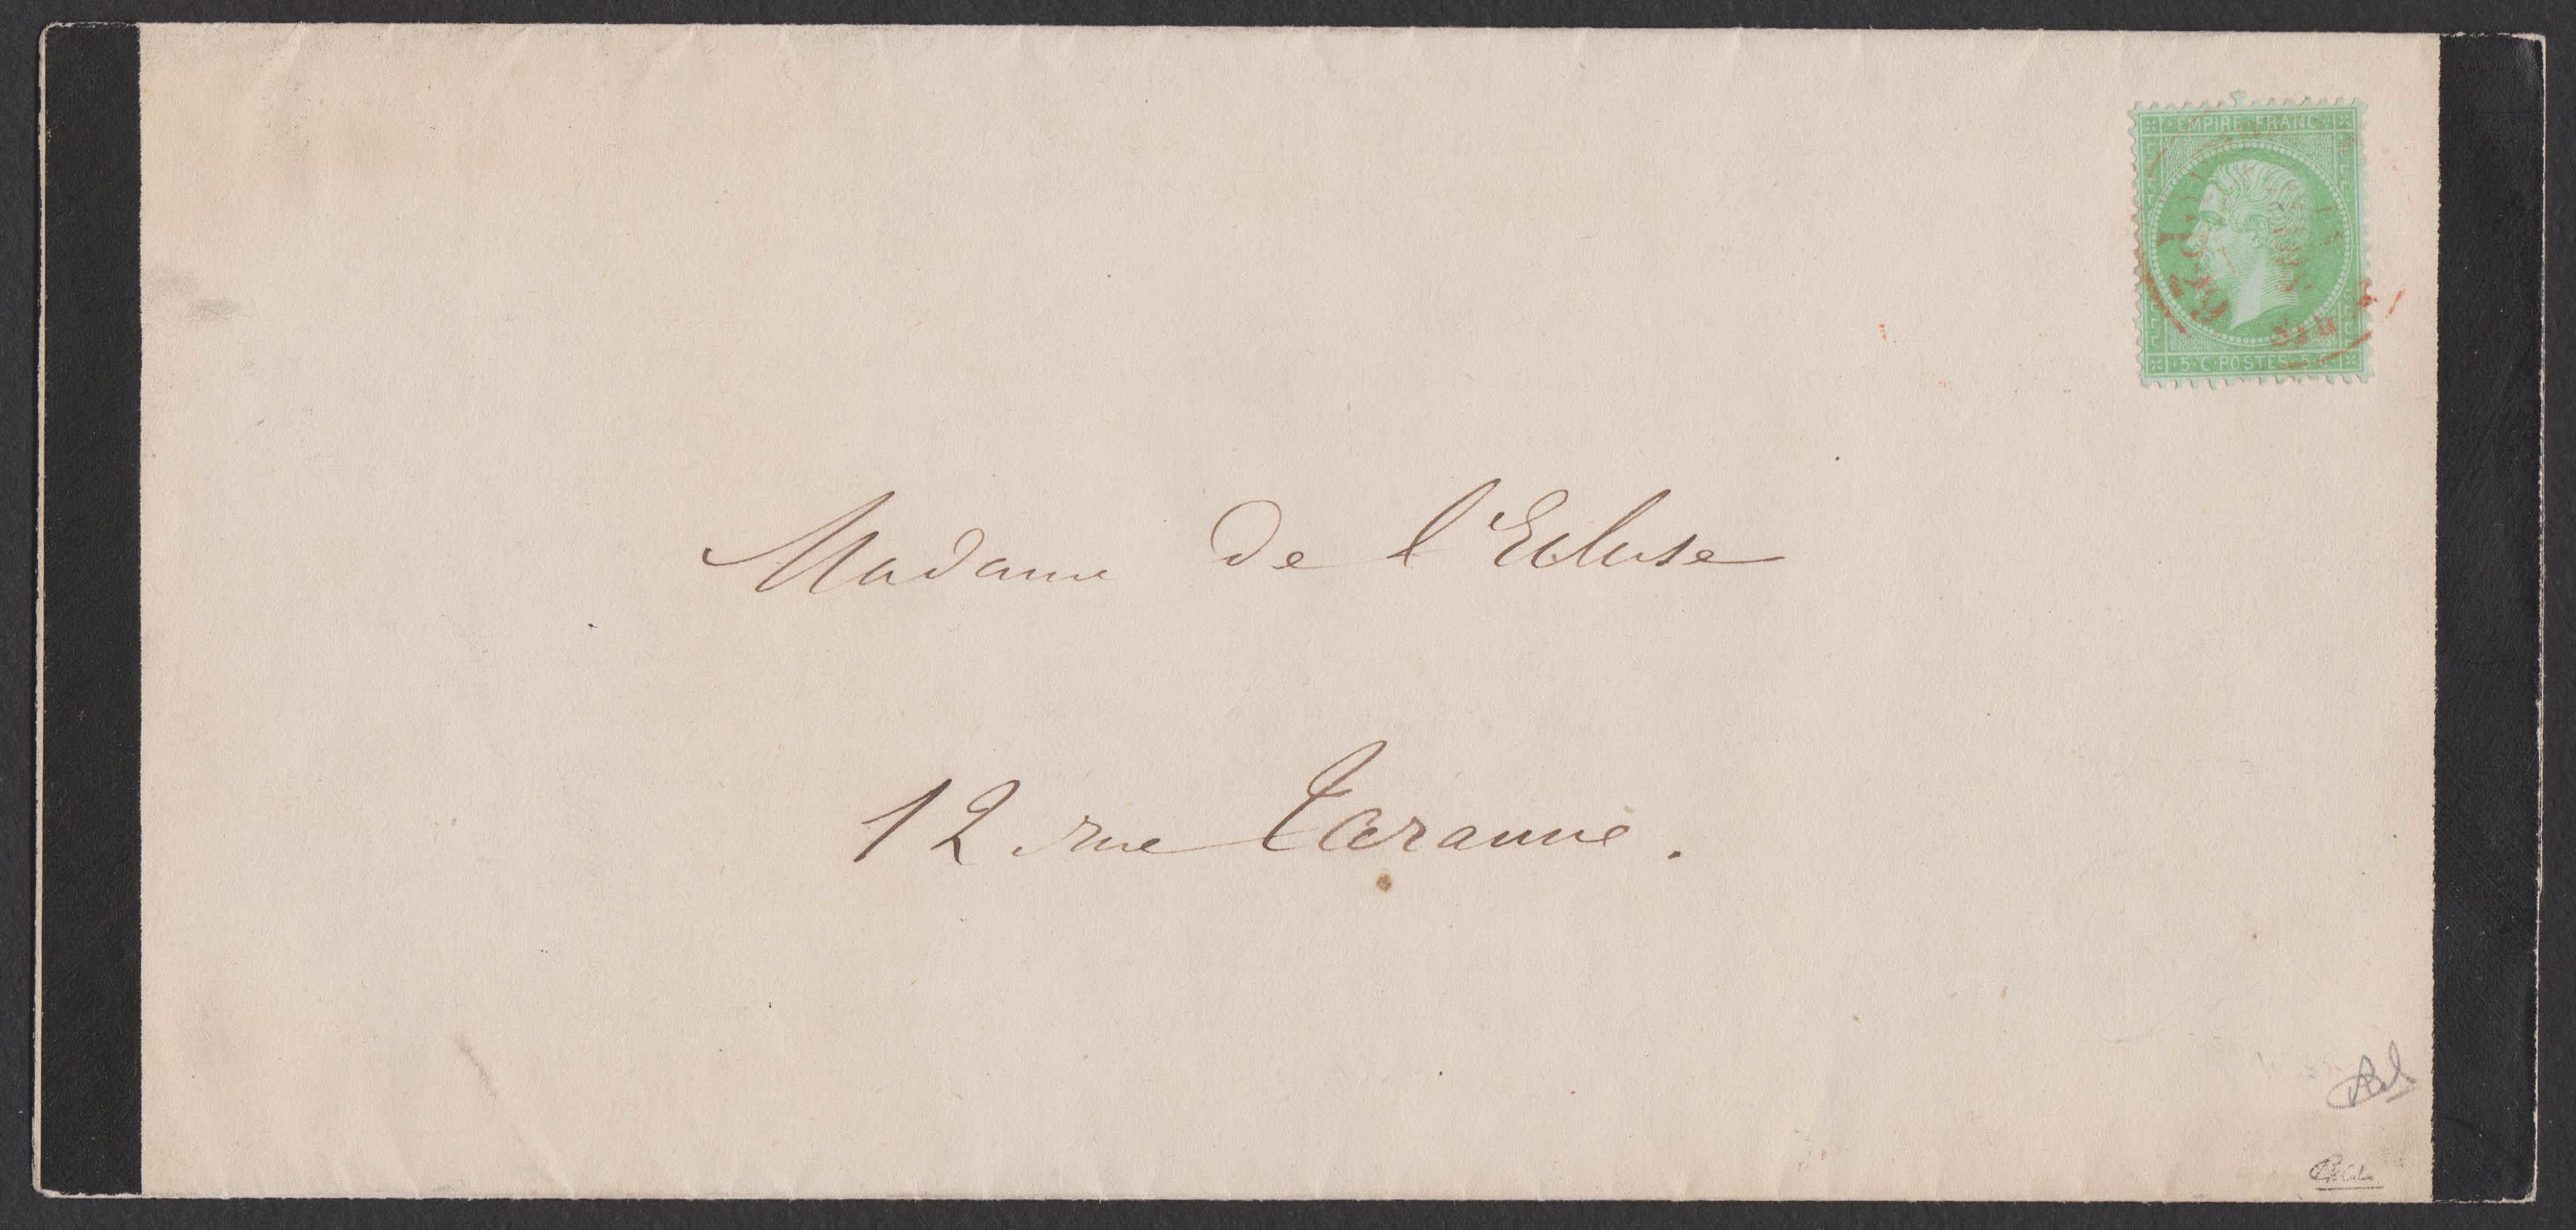 EMPIRE FRANC
5 C POSTES 5 C
29
Madame de l'Ecluse
12 rue Taranne.